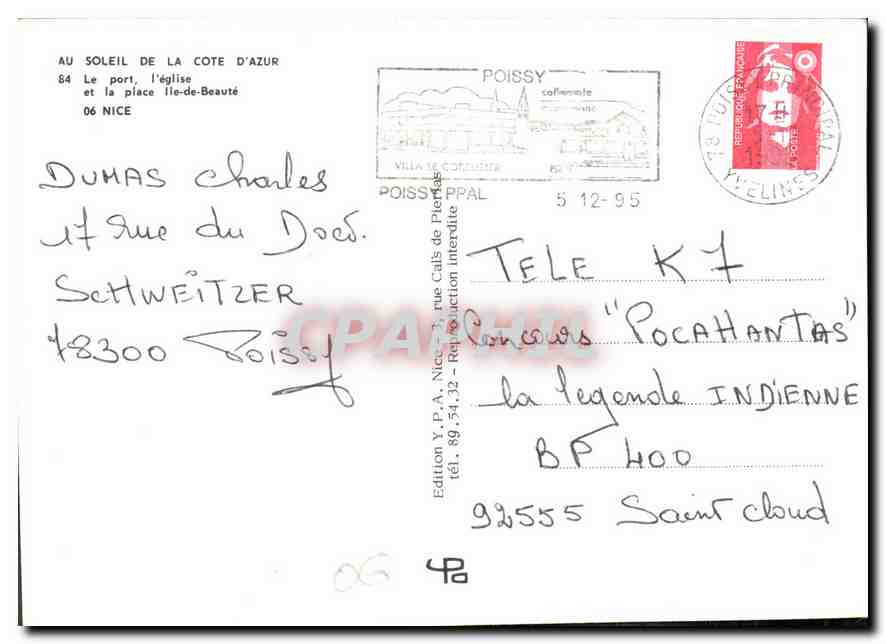 AU SOLEIL DE LA COTE D'AZUR
84 Le port, l'église
et la place Ile-de-Beauté
06 NICE
POISSY
VILLA LE CORBUSIER
POISSY PPAL
5 12-95
REPUBLIQUE FRANÇAISE
LA POSTE
78 POISSY PRINCIPAL
YVELINES
DUMAS Charles
17 rue du Doct.
SCHWEITZER
78300 Poissy
Edition Y.P.A. Nice - 3, rue Caïs de Pierlas
tél. 89.54.32 - Reproduction interdite
TELE K7
Concours "POCAHANTAS"
la legende INDIENNE
BP 400
92555 Saint Cloud
CPAPHIL
06